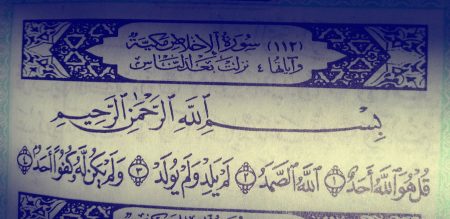 (١١٢) سُورَةُ الإِخْلَاصِ مَكِّيَّة
وَآيَاتُهَا ٤ نَزَلَتْ بَعْدَ النَّاسِ
بِسْمِ اللَّهِ الرَّحْمَٰنِ الرَّحِيمِ
قُلْ هُوَ اللَّهُ أَحَدٌ ١ اللَّهُ الصَّمَدُ ٢ لَمْ يَلِدْ وَلَمْ يُولَدْ ٣ وَلَمْ يَكُن لَّهُ كُفُوًا أَحَدٌ ٤